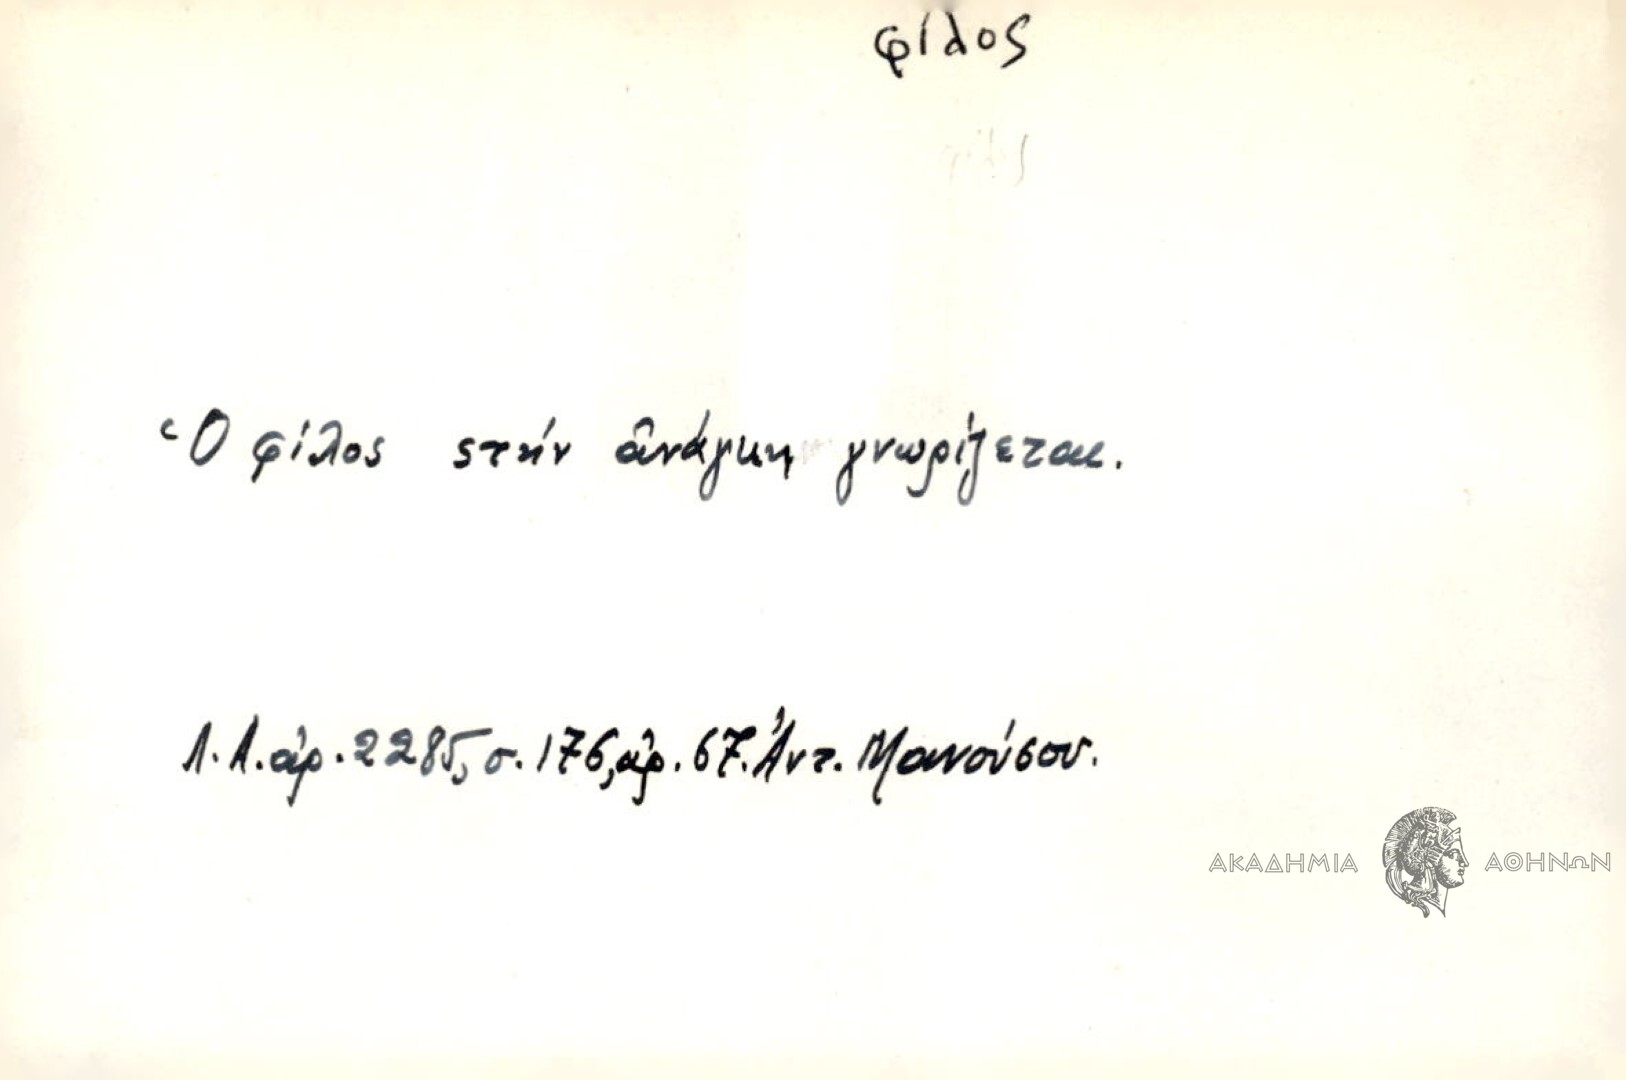 φίλος
Ὁ φίλος στήν ἀνάγκη γνωρίζεται.
Λ.Α. ἀρ. 2285, σ. 176, ἀρ. 67. Ἀντ. Μανούσου.
ΑΚΑΔΗΜΙΑ ΑΘΗΝΩΝ